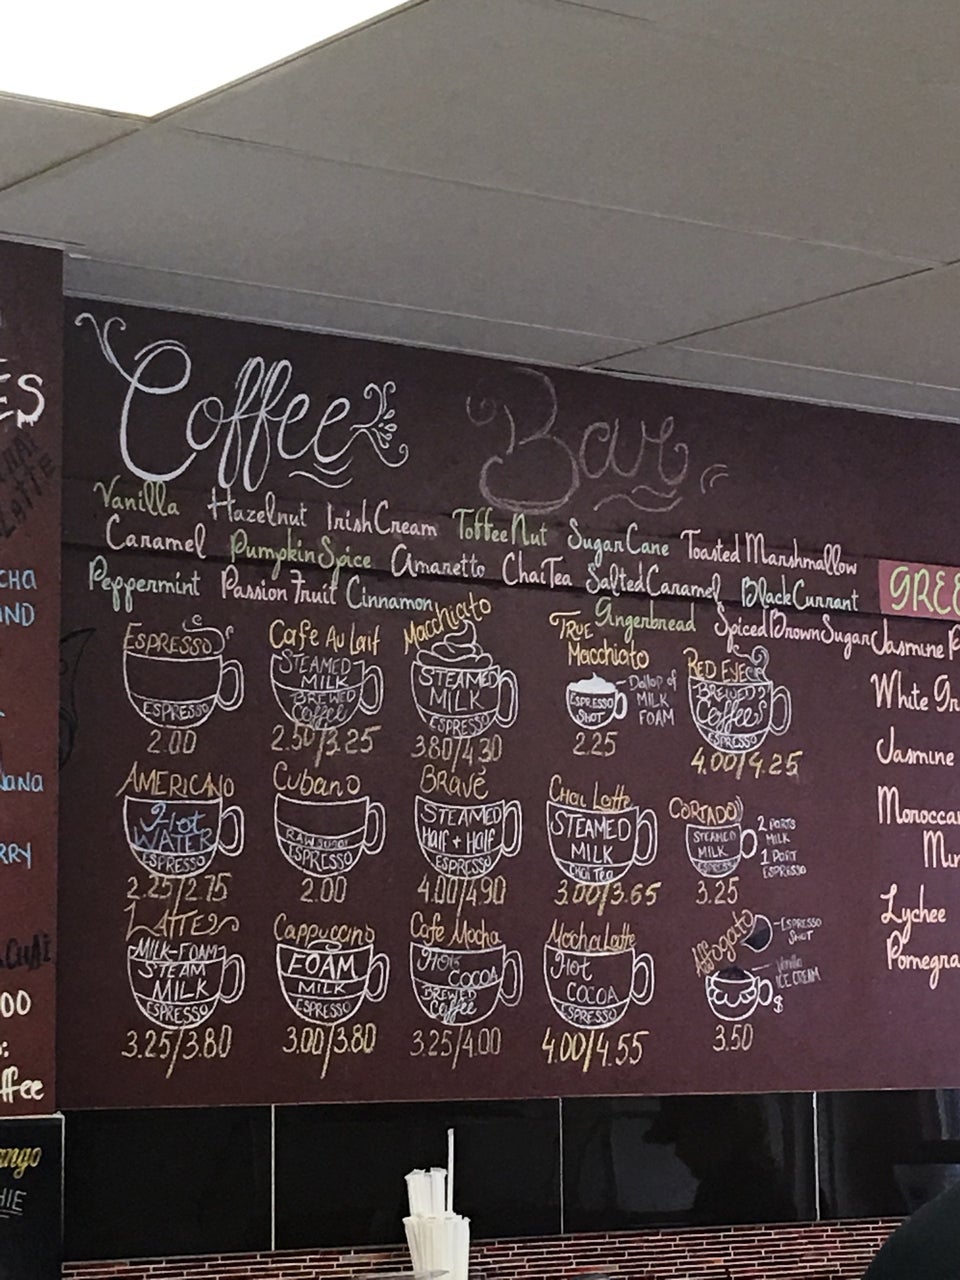 Coffee Bar
Vanilla Hazelnut Irish Cream Toffee Nut Sugar Cane Toasted Marshmallow
Caramel Pumpkin Spice Amaretto Chai Tea Salted Caramel Black Currant
Peppermint Passion Fruit Cinnamon Gingerbread Spiced Brown Sugar
ESPRESSO
ESPRESSO
2.00
Cafe Au Lait
STEAMED
MILK
BREWED
Coffee
2.50/3.25
Macchiato
STEAMED
MILK
ESPRESSO
3.80/4.30
TRUE
Macchiato
ESPRESSO
SHOT
Dollop of
MILK
FOAM
2.25
RED EYE
BREWED
Coffee
ESPRESSO
4.00/4.25
AMERICANO
Hot
WATER
ESPRESSO
2.25/2.75
Cubano
RAW SUGAR
ESPRESSO
2.00
Brave
STEAMED
HALF + HALF
ESPRESSO
4.00/4.90
Chai Latte
STEAMED
MILK
CHAI TEA
3.00/3.65
CORTADO
STEAMED
MILK
ESPRESSO
2 PARTS
MILK
1 PART
ESPRESSO
3.25
LATTE
MILK-FOAM
STEAM
MILK
ESPRESSO
3.25/3.80
Cappuccino
FOAM
MILK
ESPRESSO
3.00/3.80
Cafe Mocha
Hot
COCOA
BREWED
Coffee
3.25/4.00
Mocha Latte
Hot
COCOA
ESPRESSO
4.00/4.55
Affogato
ESPRESSO
SHOT
Vanilla
ICE CREAM
$
3.50
GREE
Jasmine P
White Gr
Jasmine
Moroccan
Lychee
Pomegra
ES
CHAI
LATTE
CHA
ND
ana
RRY
CHAI
00
ffee
ango
HIE